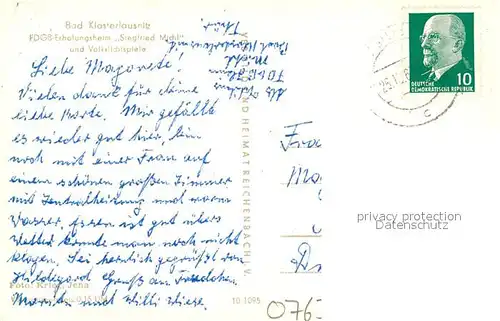 Bad Klosterlausnitz
FDGB-Erholungsheim „Siegfried Michl"
und Volkslichtspiele
Liebe Magarete!
Vielen Dank für deine
liebe Karte. Mir gefällt
es wieder gut hier, bin
noch mit einer Frau auf
einem schönen großen Zimmer
mit Zentralheizung und warm
Wasser. Essen ist gut übers
Wetter konnte man noch nicht
klagen. Sei herzlich gegrüßt von
Hildegard Gruß an Friedchen
Martin und Willi Wiese.
Foto: Krieg, Jena
10 1095
UND HEIMAT REICHENBACH i. V.
DEUTSCHE
DEMOKRATISCHE REPUBLIK
10
C
privacy protection
Datenschutz
076-